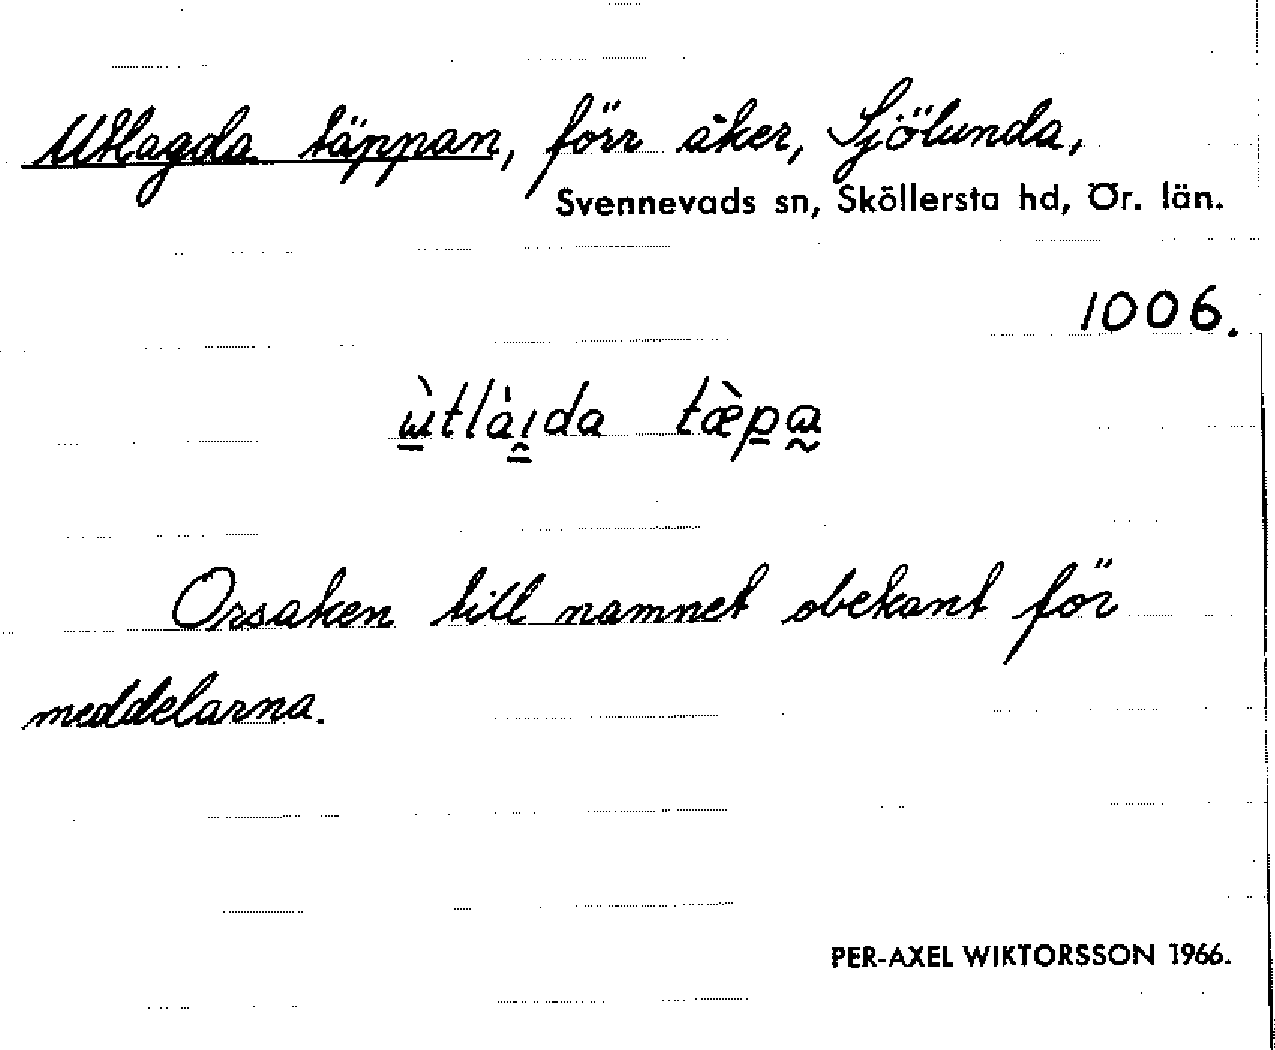 Utlagda täppan, förr åker, Sjölunda,
Svennevads sn, Sköllersta hd, Ör. län.
1006.
ùtlàıda tæ̀pa
Orsaken till namnet obekant för
meddelarna.
PER-AXEL WIKTORSSON 1966.